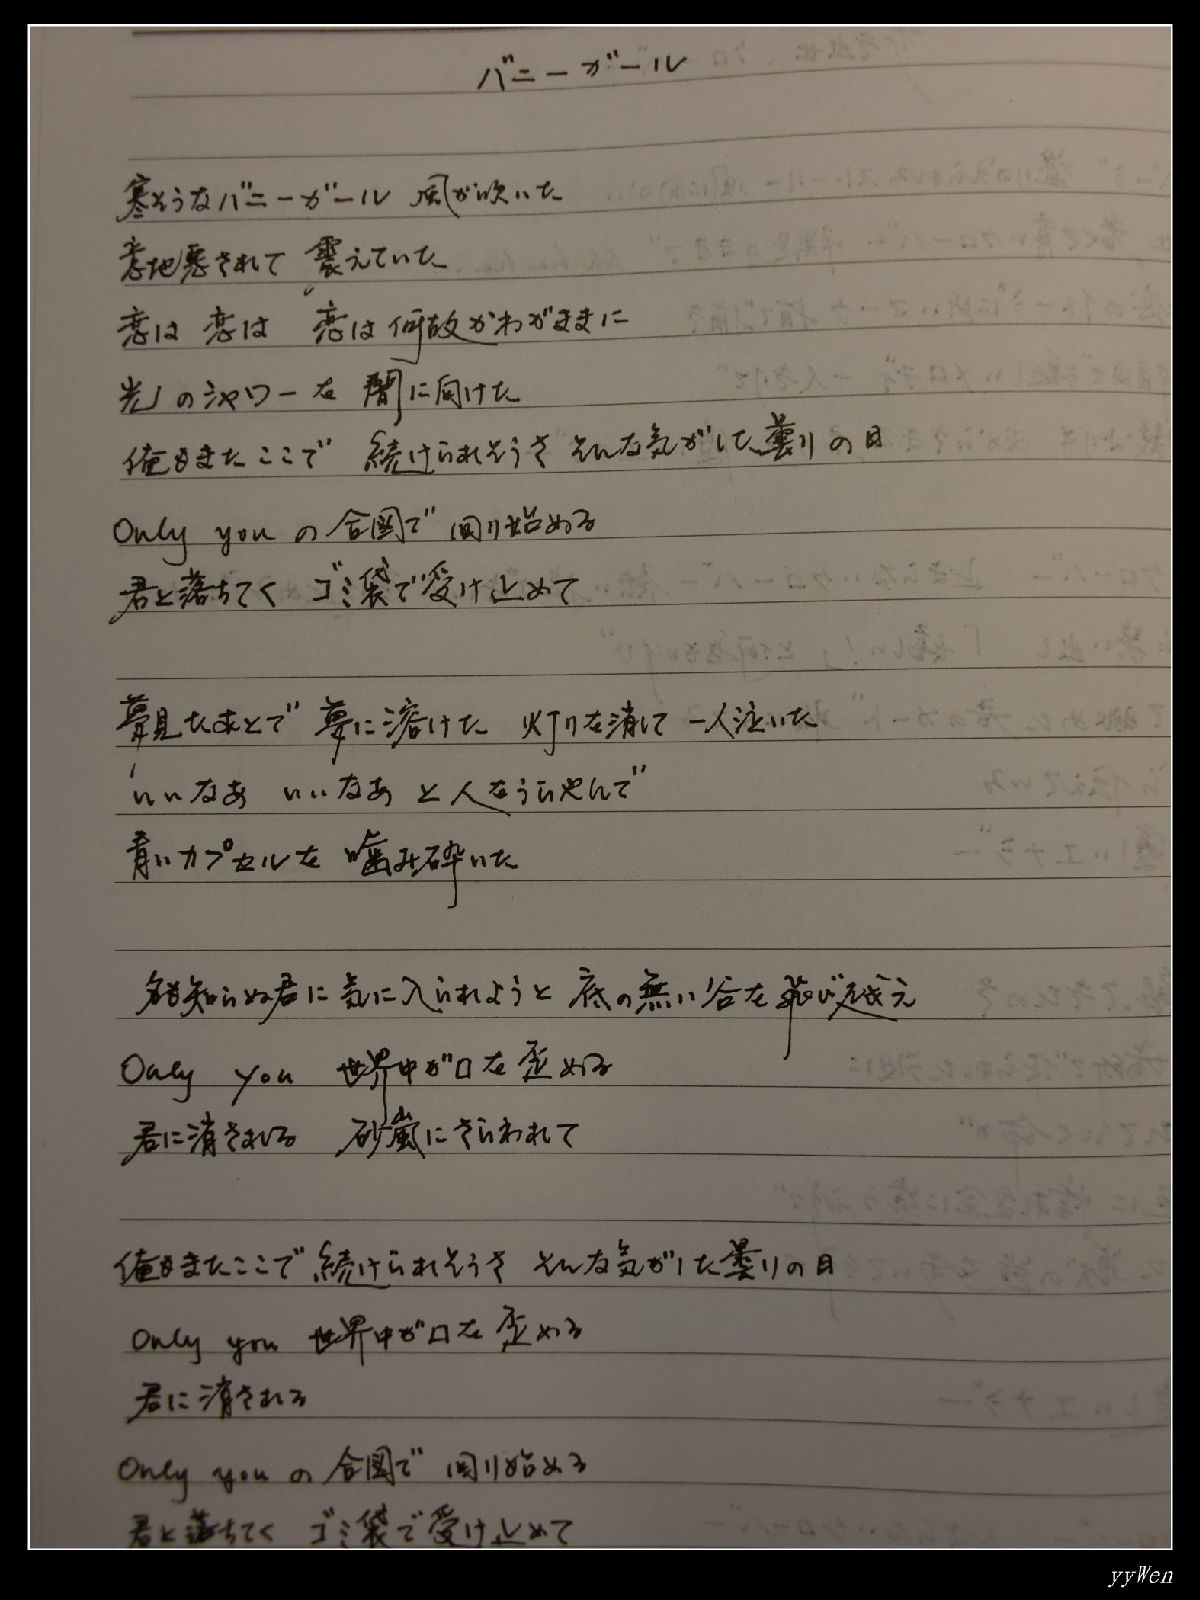 バニーガール
寒そうなバニーガール 風が吹いた
意地悪されて 震えていた
恋は 恋は 恋は何故かわがままに
光のシャワーを 闇に向けた
俺もまたここで 続けられそうさ そんな気がした曇りの日
Only you の合図で 回り始める
君と落ちてく ゴミ袋で受け止めて
夢見たあとで 夢に溶けた 灯りを消して 一人泣いた
いいなあ いいなあ と人をうらやんで
青いカプセルを 噛み砕いた
名も知らぬ君に 気に入られようと 底の無い谷を 飛び越え
Only you 世界中が口を歪める
君に消される 砂嵐にさらわれて
俺もまたここで 続けられそうさ そんな気がした曇りの日
Only you 世界中が口を歪める
君に消される
Only you の 合図で 回り始める
君と落ちてく ゴミ袋で受け止めて
yyWen